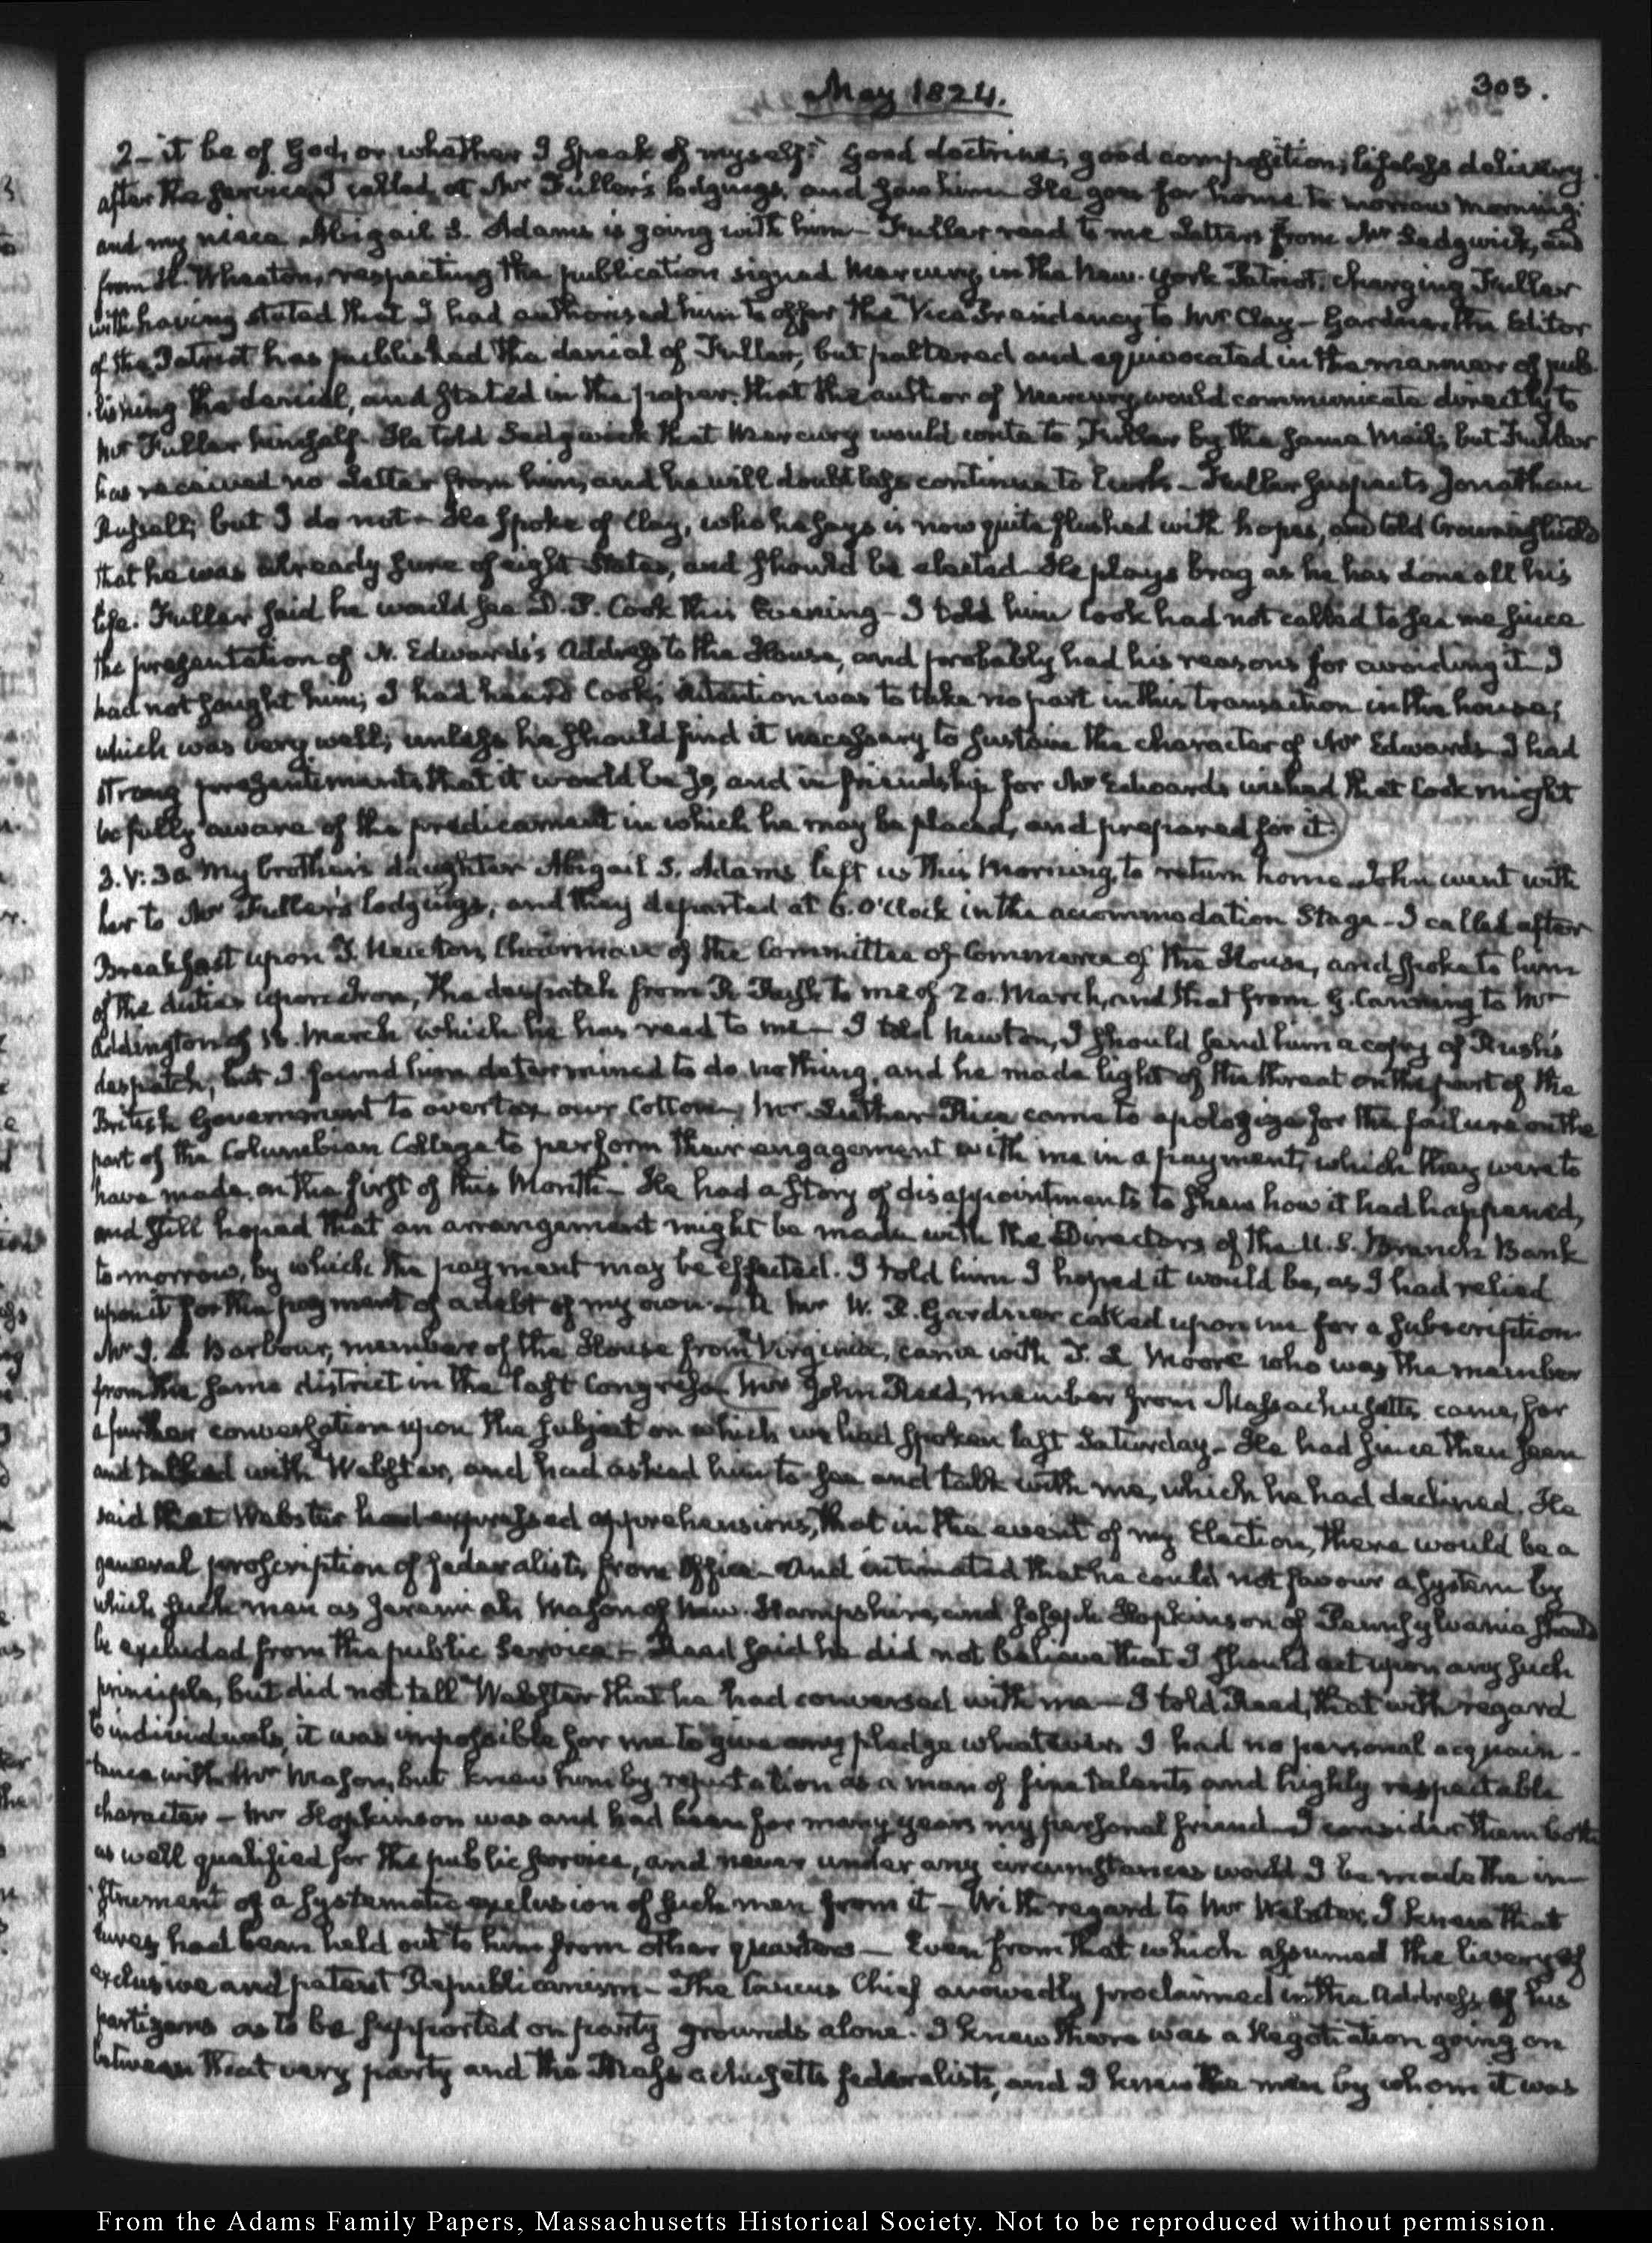 May 1824.
303.
2- it be of God, or whether I speak of myself." Good doctrine; good composition; lifeless delivery.
after the service I called at Mr Fuller's lodgings, and saw him. He goes for home to morrow morning:
and my niece Abigail S. Adams is going with him— Fuller read to me Letters from Mr Sedgwick, and
from H. Wheaton, respecting the publication signed Mercury in the New-York Patriot, charging Fuller
with having stated that I had authorised him to offer the Vice Presidency to Mr Clay— Gardner the Editor
of the Patriot has published the denial of Fuller, but paltered and equivocated in the manner of pub-
lishing the denial, and stated in the paper, that the author of Mercury would communicate directly to
Mr Fuller himself. He told Sedgwick that Mercury would write to Fuller by the same Mail; but Fuller
has received no Letter from him, and he will doubtless continue to lurk— Fuller suspects Jonathan
Russell; but I do not— He spoke of Clay, who he says is now quite flushed with hopes, and told Crowninshield
that he was already sure of eight States, and should be elected— He plays brag as he has done all his
life. Fuller said he would see D. P. Cook this Evening— I told him Cook had not called to see me since
the presentation of N. Edwards's Address to the House, and probably had his reasons for avoiding it— I
had not sought him; I had heard Cook's intention was to take no part in this transaction in the house;
which was very well; unless he should find it necessary to sustain the character of Mr Edwards— I had
strong presentiments that it would be so, and in friendship for Mr Edwards wished that Cook might
be fully aware of the predicament in which he may be placed, and prepared for it.
3. V:30. My brother's daughter Abigail S. Adams left us this Morning, to return home. John went with
her to Mr Fuller's lodgings, and they departed at 6. O'Clock in the accommodation Stage— I called after
Breakfast upon T. Newton, Chairman of the Committee of Commerce of the House, and spoke to him
of the duties upon Iron, the despatch from R Rush to me of 20. March, and that from G. Canning to Mr
Addington of 18. March which he has read to me— I told Newton, I should send him a copy of Rush's
despatch; but I found him determined to do nothing, and he made light of the threat on the part of the
British Government to overtax our Cotton— Mr Luther Rice came to apologize for the failure on the
part of the Columbian College to perform their engagement with me in a payment, which they were to
have made on the first of this Month— He had a story of disappointments to shew how it had happened,
and still hoped that an arrangement might be made with the Directors of the U.S. Branch Bank
to morrow, by which the payment may be effected. I told him I hoped it would be, as I had relied
upon it for the payment of a debt of my own— A Mr W. R. Gardner called upon me for a subscription.
Mr J. S Barbour, member of the House from Virginia, came with T. L Moore who was the member
from the same district in the last Congress. Mr John Reed, member from Massachusetts came, for
a further conversation upon the subject on which we had spoken last Saturday— He had since then seen
and talked with Webster, and had asked him to see and talk with me, which he had declined. He
said that Webster had expressed apprehensions, that in the event of my Election, there would be a
general proscription of federalists from Office— And intimated that he could not favour a system by
which such men as Jeremiah Mason of New-Hampshire, and Joseph Hopkinson of Pennsylvania should
be excluded from the public service— Reed said he did not believe that I should act upon any such
principle, but did not tell Webster that he had conversed with me— I told Reed, that with regard
to individuals, it was impossible for me to give any pledge whatever. I had no personal acquain-
tance with Mr Mason, but knew him by reputation as a man of fine talents and highly respectable
character— Mr Hopkinson was and had been for many years my personal friend— I consider them both
as well qualified for the public service, and never under any circumstances would I be made the in-
strument of a systematic exclusion of such men from it— With regard to Mr Webster, I knew that
lures had been held out to him from other quarters— Even from that which assumed the livery of
exclusive and patent Republicanism— The Caucus Chief avowedly proclaimed in the Address of his
partizans as to be supported on party grounds alone. I knew there was a Negotiation going on
between that very party and the Massachusetts federalists, and I knew the man by whom it was
From the Adams Family Papers, Massachusetts Historical Society. Not to be reproduced without permission.